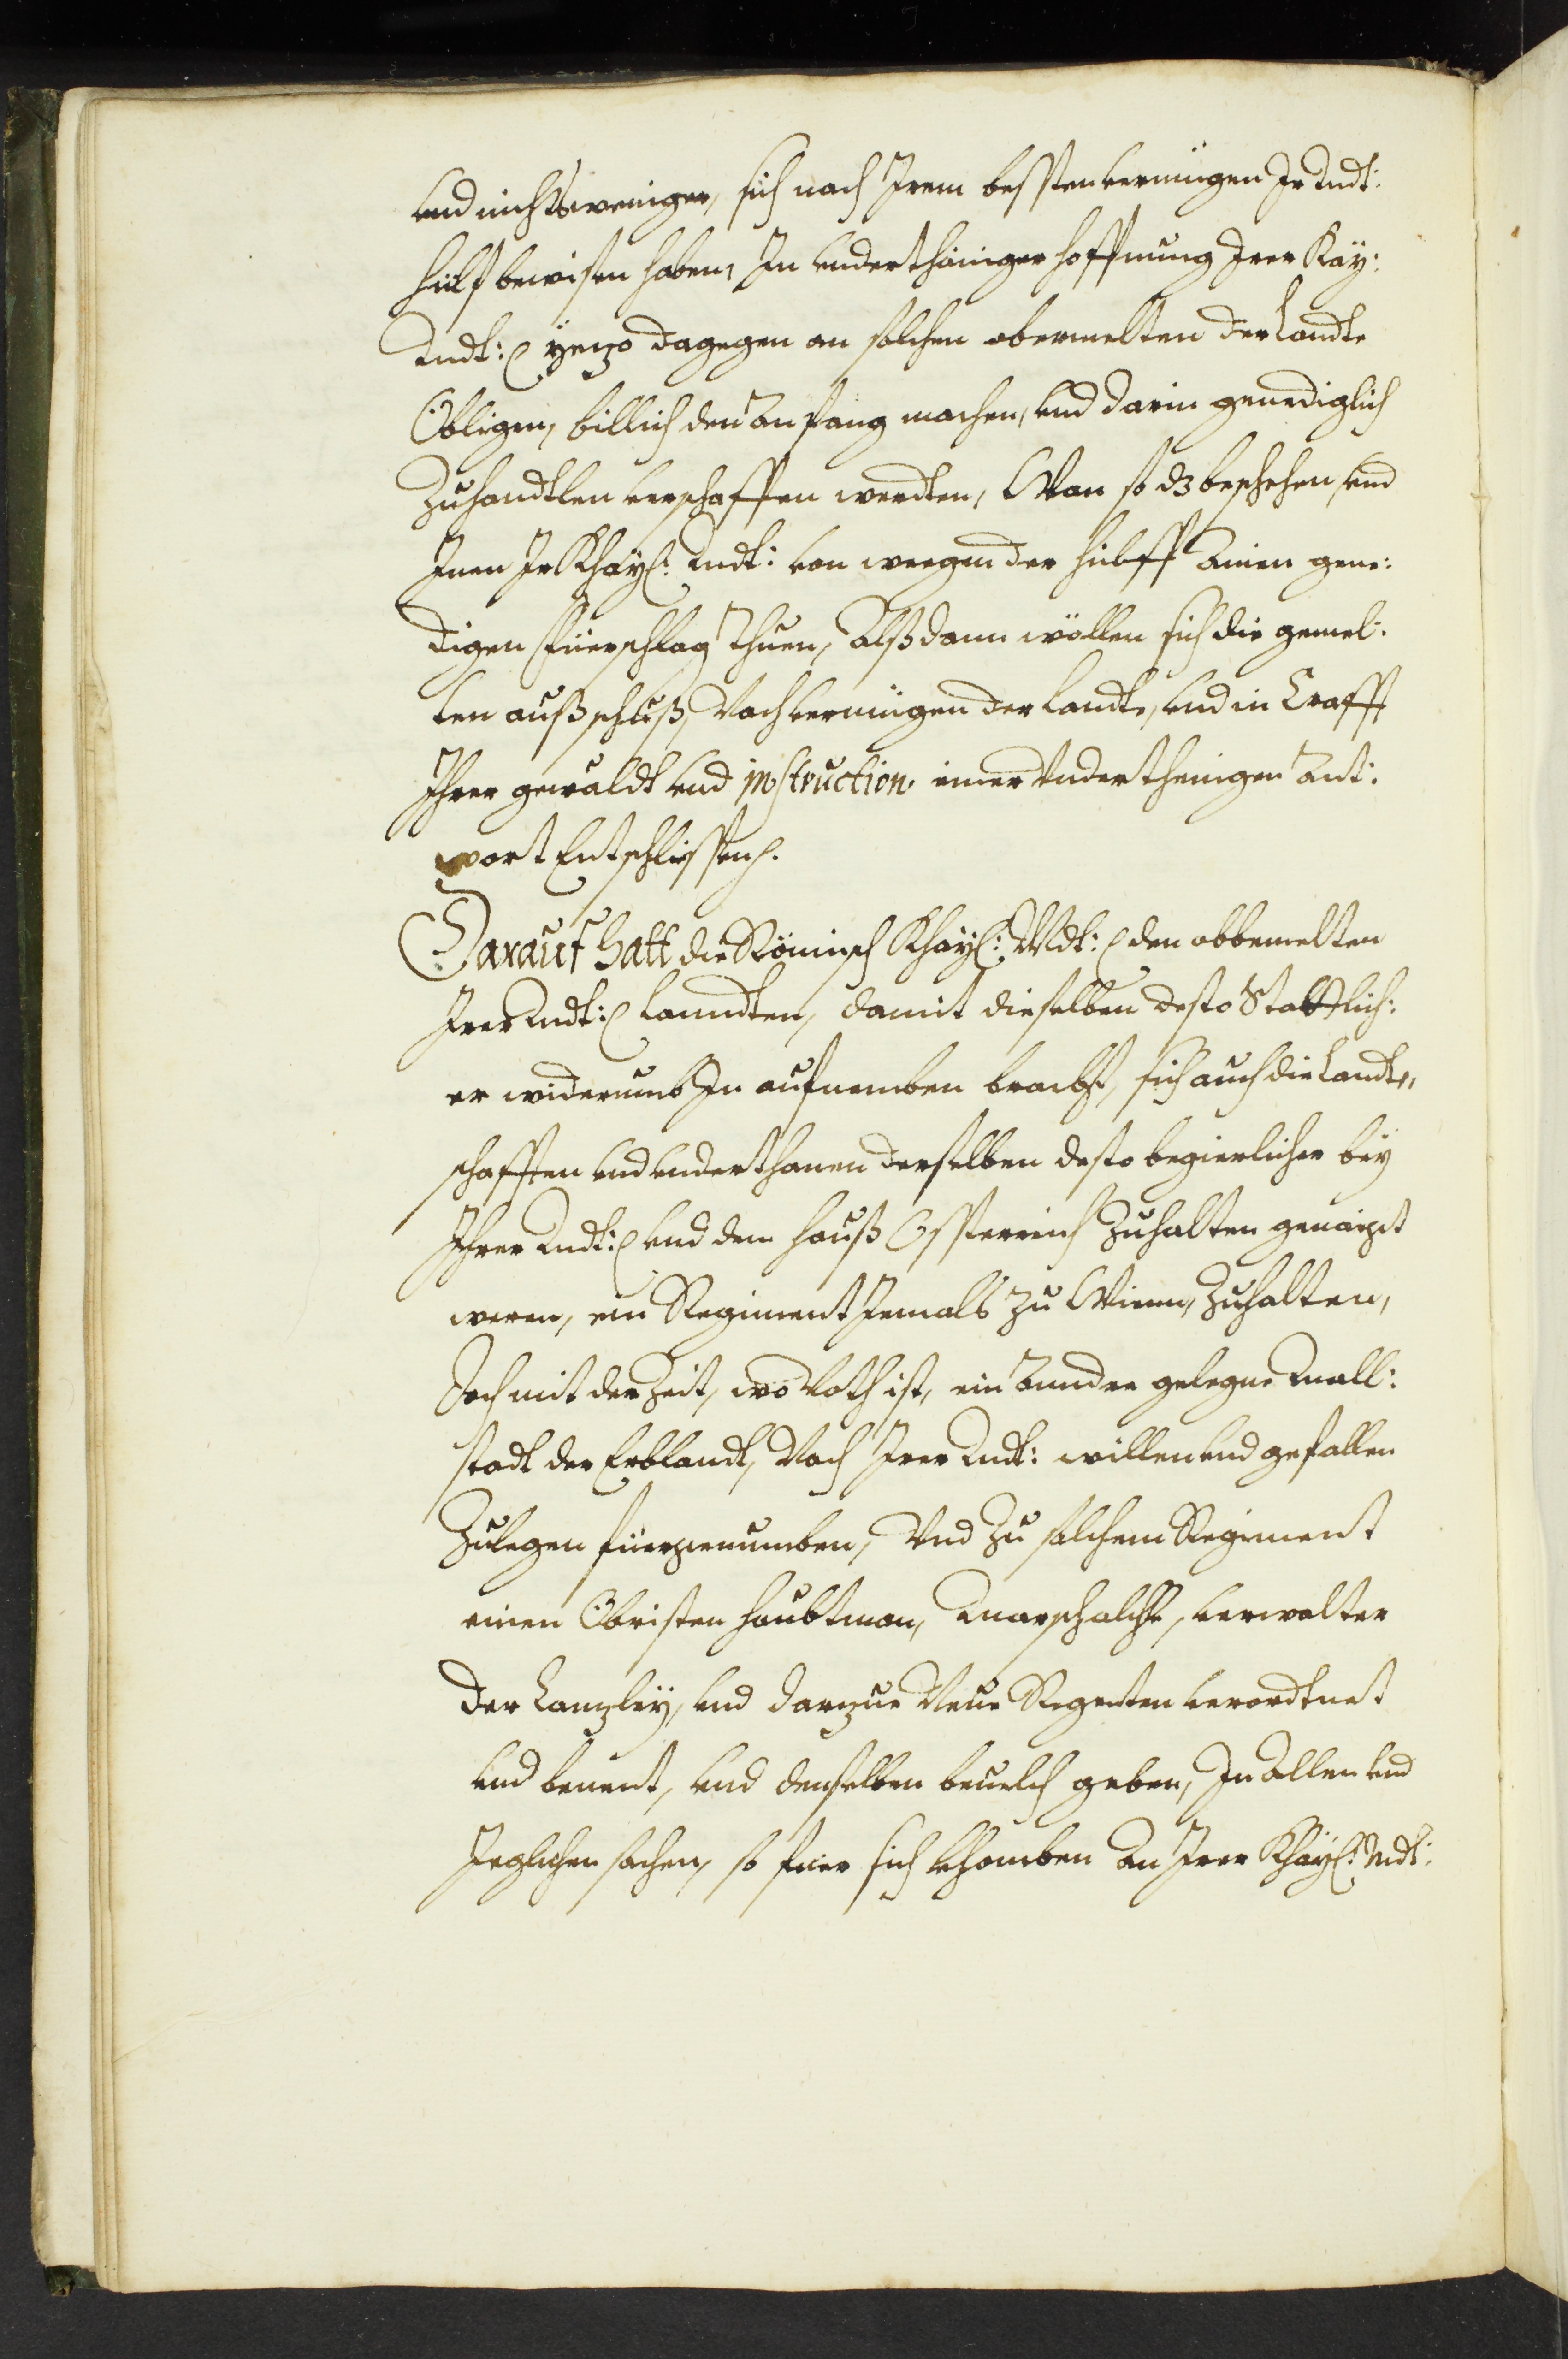 und nichtsweniger, sich nach Irem bessten vermügen Ir Mdt:
hülf bewisen haben, In underthäniger hoffnung Irer Kay:
Mdt: yezo dagegen an solchen obermelten der Landte
Obligen, billich den Anfang machen, und darin genediglich
Zuhandtlen verschaffen werdten, Wan so dz beschehen, und
Inen Ir Khay: Mdt: von weegen der hielff Ainen gene:
digen Füerschlag Thuen, Alßdann wöllen sich die gemel:
ten außschuß, Nach vermügen der Landte, und in Crafft
Ihrer gewaldt und instruction, einer Underthenigen Ant:
wort Entschliessen.
Darauf hatt die Römisch Khay: Mdt: den obbemelten
Irer Mdt: Lanndten, damit dieselben desto Stattlich:
er widerumb In aufnemben bracht, sich auch die Landt,,
schafften und underthanen derselben desto begierlicher bey
Ihrer Mdt: und dem Hauß Össterreich Zuhalten genaigt
weren, ein Regiment Iemals zu Wienn, Zuhalten,
Doch mit der Zeit, wo Noth ist, ein Anndre gelegne Mall:
stadt der Erblandt, Nach Irer Mdt: willen und gefallen
Zulegen fürgenumben, Und Zu solchem Regiment
einen Obristen Haubtman, Marschalckh, verwalter
der Canzley, und darzue Neun Regenten verordtnet
und benent, und denselben beuelch geben, In Allen und
Ieglichen sachen, so füer sich khomben An Irer Khay: Mdt: